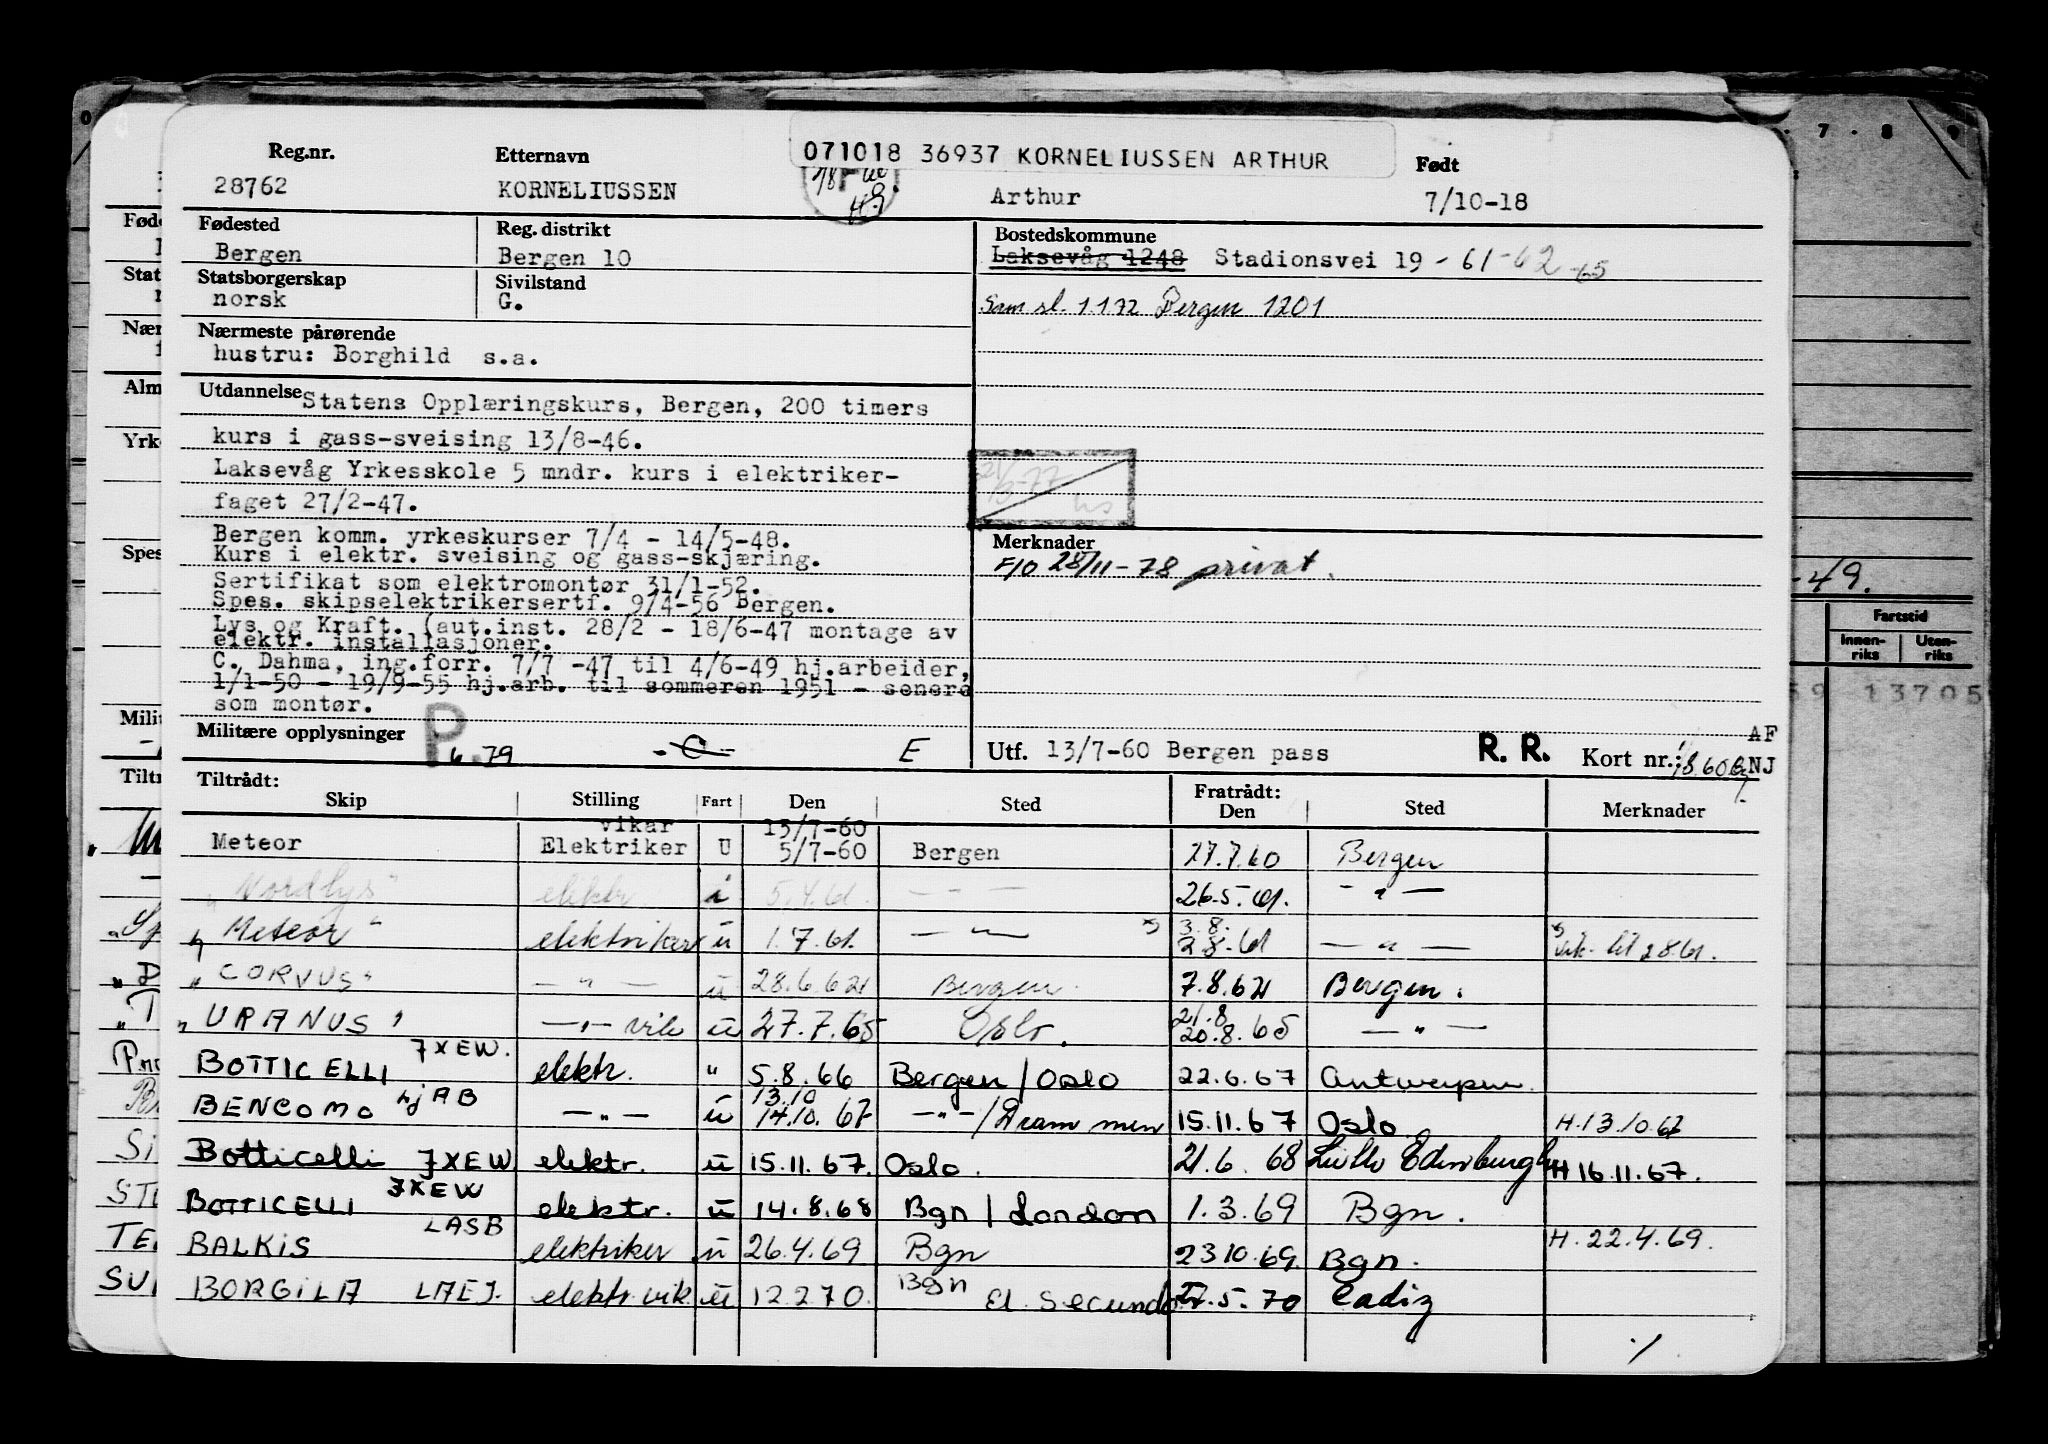 071018 36937 KORNELIUSSEN ARTHUR
Reg.nr. Etternavn Født
28762 KORNELIUSSEN Arthur 7/10-18
Fødested Reg. distrikt Bostedskommune
Bergen Bergen 10 Laksevåg 1248 Stadionsvei 19 - 61-62-65
Statsborgerskap Sivilstand
norsk G. Sam sl. 1.1.72 Bergen 1201
Nærmeste pårørende
hustru: Borghild s.a.
Utdannelse Statens Opplæringskurs, Bergen, 200 timers
kurs i gass-sveising 13/8-46.
Laksevåg Yrkesskole 5 mndr. kurs i elektriker-
faget 27/2-47.
Bergen komm. yrkeskurser 7/4 - 14/5-48.
Kurs i elektr. sveising og gass-skjæring.
Sertifikat som elektromontør 31/1-52.
Spes. skipselektrikersertf. 9/4-56 Bergen.
Lys og Kraft. (aut.inst. 28/2 - 18/6-47 montage av
elektr. installasjoner.
C. Dahma, ing.forr. 7/7 -47 til 4/6-49 hj.arbeider,
1/1-50 - 19/9-55 hj.arb. til sommeren 1951 - senere
som montør.
Merknader
F/O 28/11-78 privat.
Militære opplysninger P 6.79 - C - E Utf. 13/7-60 Bergen pass R. R. Kort nr.: AF NJ
Tiltrådt: Fratrådt:
Skip Stilling Fart Den Sted Den Sted Merknader
Meteor vikar Elektriker U 13/7-60 5/7-60 Bergen 27.7.60 Bergen
"Nordlys" elektr. i 5.4.61. — — — 26.5.61. — " —
"Meteor" elektriker u 1.7.61. — " — 3.8. 2.8.61 — " — vik. til 2861.
"CORVUS" — " — u 28.6.62 Bergen 7.8.62 Bergen.
"URANUS" — " — vik u 27.7.65 Oslo. 21.8 20.8.65 — " —
BOTTICELLI JXEW. elektr. " 5.8.66 Bergen/Oslo 22.6.67 Antwerpen
BENCOMO LJAB — " — u 13.10 14.10.67 — " —/Drammen 15.11.67 Oslo H.13.10.67
Botticelli JXEW elektr. u 15.11.67. Oslo. 21.6.68 Edinburgh H 16.11.67.
BOTTICELLI JXEW elektr. u 14.8.68 Bgn / London 1.3.69 Bgn.
BALKIS LASB elektriker u 26.4.69 Bgn 23.10.69. Bgn. H. 22.4.69.
BORGILA LAEJ. elektr. vik. u 12.2.70. Bgn El. Secundo 27.5.70 Cadiz
./
Fartstid
Innen-riks Uten-riks
-49.
13705